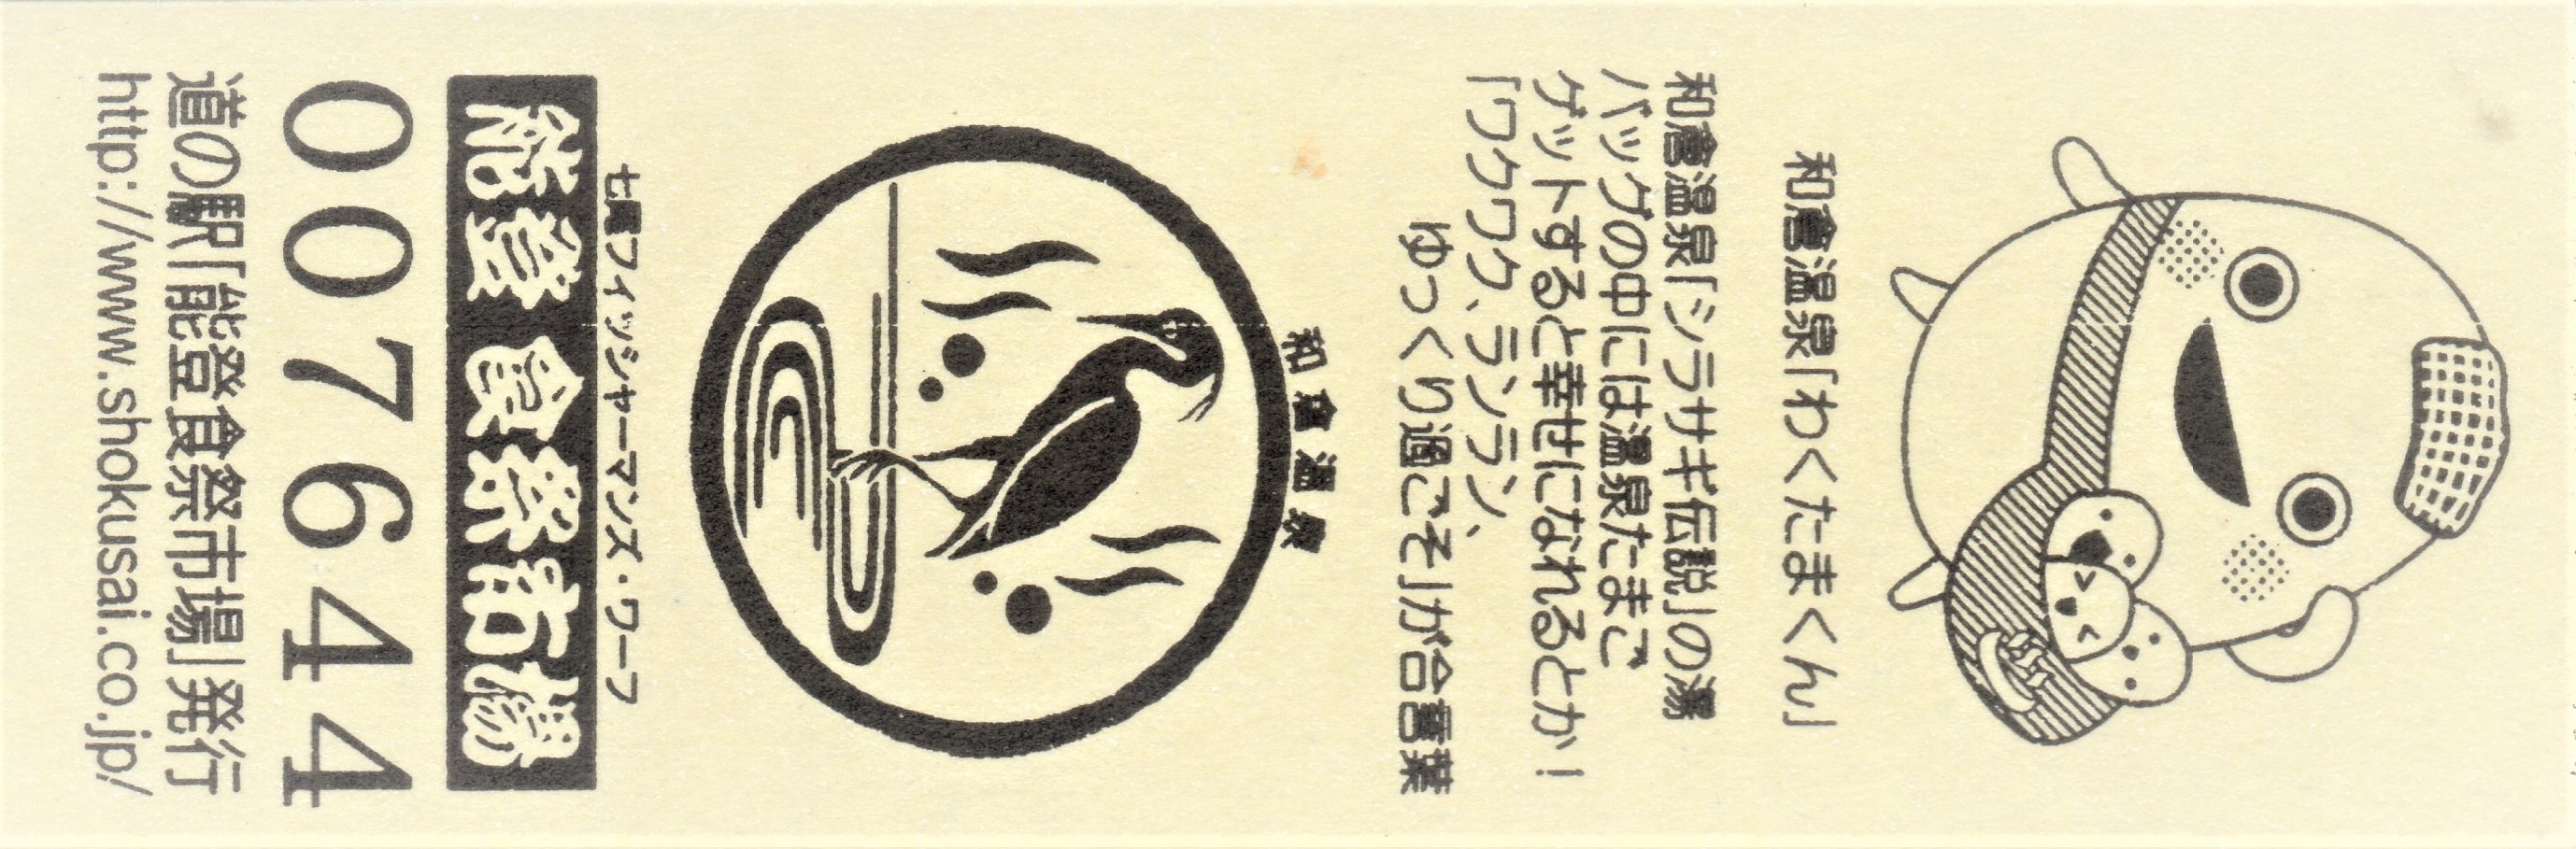 和倉温泉「わくたまくん」
和倉温泉「シラサギ伝説」の湯
バッグの中には温泉たまご
ゲットすると幸せになれるとか！
「ワクワク、ランラン、
ゆっくり過ごそ」が合言葉
和倉温泉
七尾フィッシャーマンズ・ワーフ
能登食祭市場
007644
道の駅「能登食祭市場」発行
http://www.shokusai.co.jp/